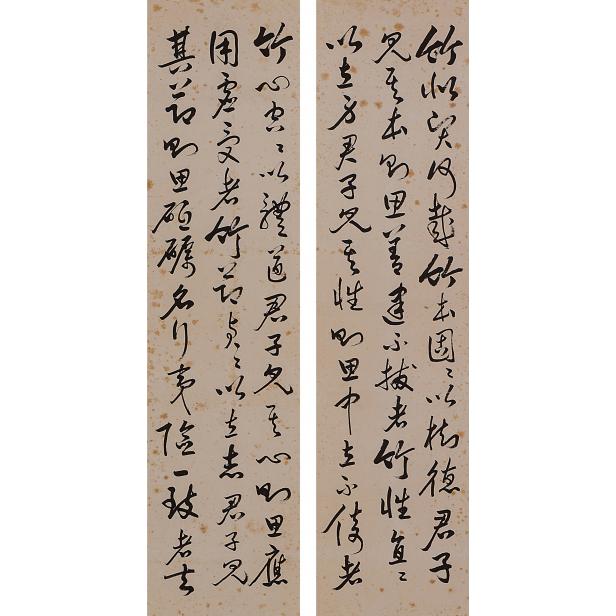 竹似賢何哉竹本固〻以樹德君子
見其本則思善建不拔者竹性直〻
以立身君子見其性則思中立不倚者
竹心空〻以體道君子見其心則思應
用虛受者竹節貞〻以立志君子見
其節則思砥礪名行夷險一致者云